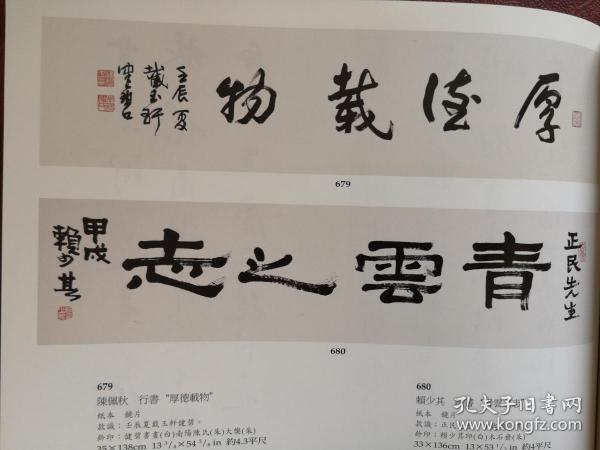 厚德載物
壬辰夏
戴玉軒
健碧
679
正民先生
青雲之志
甲戌
賴少其
680
679
陳佩秋 行書“厚德載物”
紙本 鏡片
款識：壬辰夏戴玉軒健碧。
鈐印：健碧書畫(白)南陽陳氏(朱)大懷(朱)
35×138cm 13 3/4×54 3/8 in 約4.3平尺
680
賴少其
紙本 鏡片
款識：正民
鈐印：賴少其印(白)木石齋(朱)
33×136cm 13×53 1/2 in 約4平尺
孔夫子旧书网